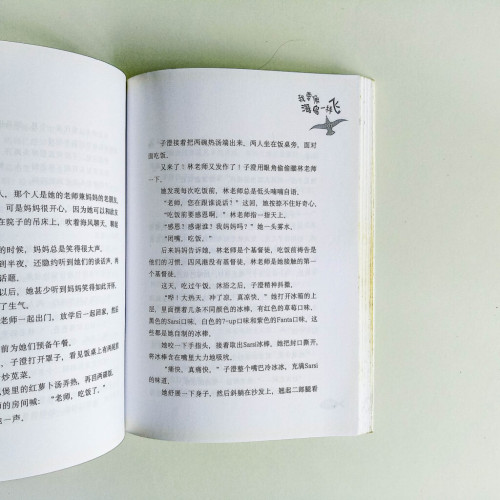 ，那个人是她的老师兼妈妈的老朋友，
可是妈妈很开心，因为她可以和故友
在院子的吊床上，吹着海风聊天，聊着
的时候，妈妈总是笑得很大声。
到半夜，还隐约听到她们的谈话声，两
话题。
以后，她甚少听到妈妈笑得如此开怀，
了生气。
老师一起出门，放学后一起回家，然后
前为她们预备午餐。
，子澄打开罩子，看见饭桌上有两碗
炒苋菜。
煲里的红萝卜汤弄熟，再舀两碗
的房间喊：“老师，吃饭了。”
一声。
我要像
海鸟一样飞
子澄接着把两碗热汤端出来，两人坐在饭桌旁，面对
面吃饭。
又来了！林老师又发作了！子澄用眼角偷偷瞄林老师
一下。
她发现每次吃饭前，林老师总是低头喃喃自语。
“老师，您在跟谁说话？”这回，她按捺不住好奇心。
“吃饭前要感恩啊。”林老师指一指天上。
“感恩？感谢谁？我妈妈吗？”她一头雾水。
“闭嘴，吃饭。”
后来妈妈告诉她，林老师是个基督徒，吃饭前祷告是
他们的习惯，四风港没有基督徒，林老师是她接触的第一
个基督徒。
这天，吃过午饭，沐浴之后，子澄精神抖擞，
“哗！大热天，冲了凉，真凉快。”她打开冰箱的上
层，里面摆着几条不同颜色的冰棒，有红色的草莓口味、
黑色的Sarsi口味、白色的7-up口味和紫色的Fanta口味，这
些都是她自制的冰棒。
她咬一下手指头，接着取出Sarsi冰棒，她把封口撕开，
将冰棒含在嘴里大力地吸吮。
“痛快，真痛快。”子澄整个嘴巴冷冰冰，充满Sarsi
的味道。
她舒缓一下身子，然后斜躺在沙发上，翘起二郎腿看